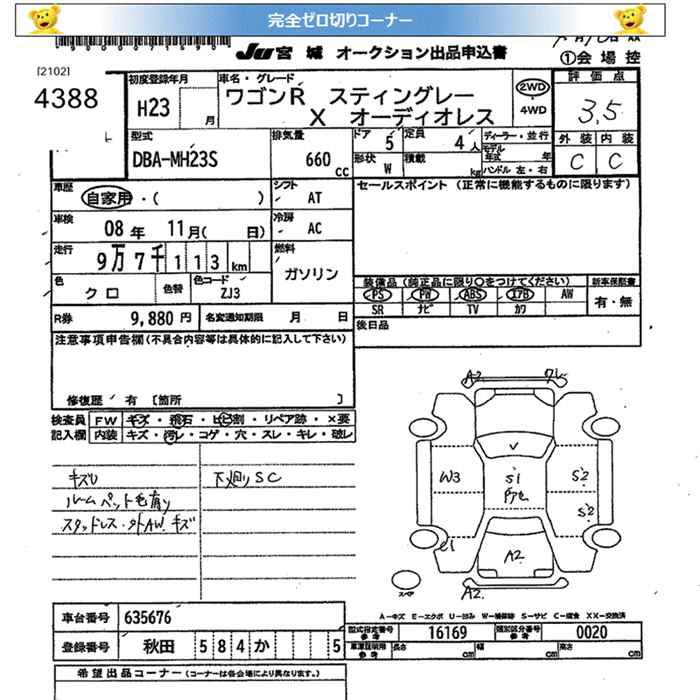 完全ゼロ切りコーナー
JU 宮城 オークション出品申込書
①会場控
[2102]
4388
初度登録年月
H23 月
車名・グレード
ワゴンR スティングレー
X オーディオレス
2WD
4WD
評価点
3.5
外装 内装
C C
型式
DBA-MH23S
排気量
660 cc
ドア 5
定員 4人
形状 W
積載 kg
ディーラー・並行
モデル年式 年
ハンドル 左・右
車歴
自家用・( )
シフト
AT
セールスポイント (正常に機能するものに限ります)
車検
08年 11月( 日)
冷房
AC
走行
9万7千113km
燃料
ガソリン
色
クロ
色替
色コード
ZJ3
装備品(純正品に限り〇をつけてください)
新車保証書
PS PW ABS エアB AW
有・無
SR ナビ TV カワ
R券 9,880円
名変通知期限 月 日
後日品
注意事項申告欄(不具合内容等は具体的に記入して下さい)
修復歴 有 〔箇所 〕
検査員記入欄
FW キズ・飛石・ヒビ割・リペア跡・×要
内装 キズ・汚レ・コゲ・穴・スレ・キレ・破レ
キズU
下廻りSC
ルームペット毛有り
スタッドレス・外AW.キズ
A2
W3
S1
S2
S2
A2
A2
スペア
A-キズ E-エクボ U-凹み W-補修跡 S-サビ C-腐食 XX-交換済
車台番号 635676
型式指定番号参考 16169
類別区分番号参考 0020
登録番号 秋田 584 か 5
車庫証明用参考 長さ cm 幅 cm 高さ cm
希望出品コーナー(コーナーは各会場により異なります。)